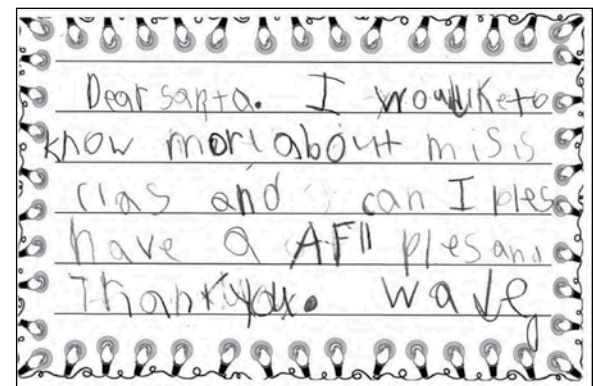 Dear santa. I wouldliketo
know more about misis
clas and can I ples
have a AFll ples and
Thankyou. wave